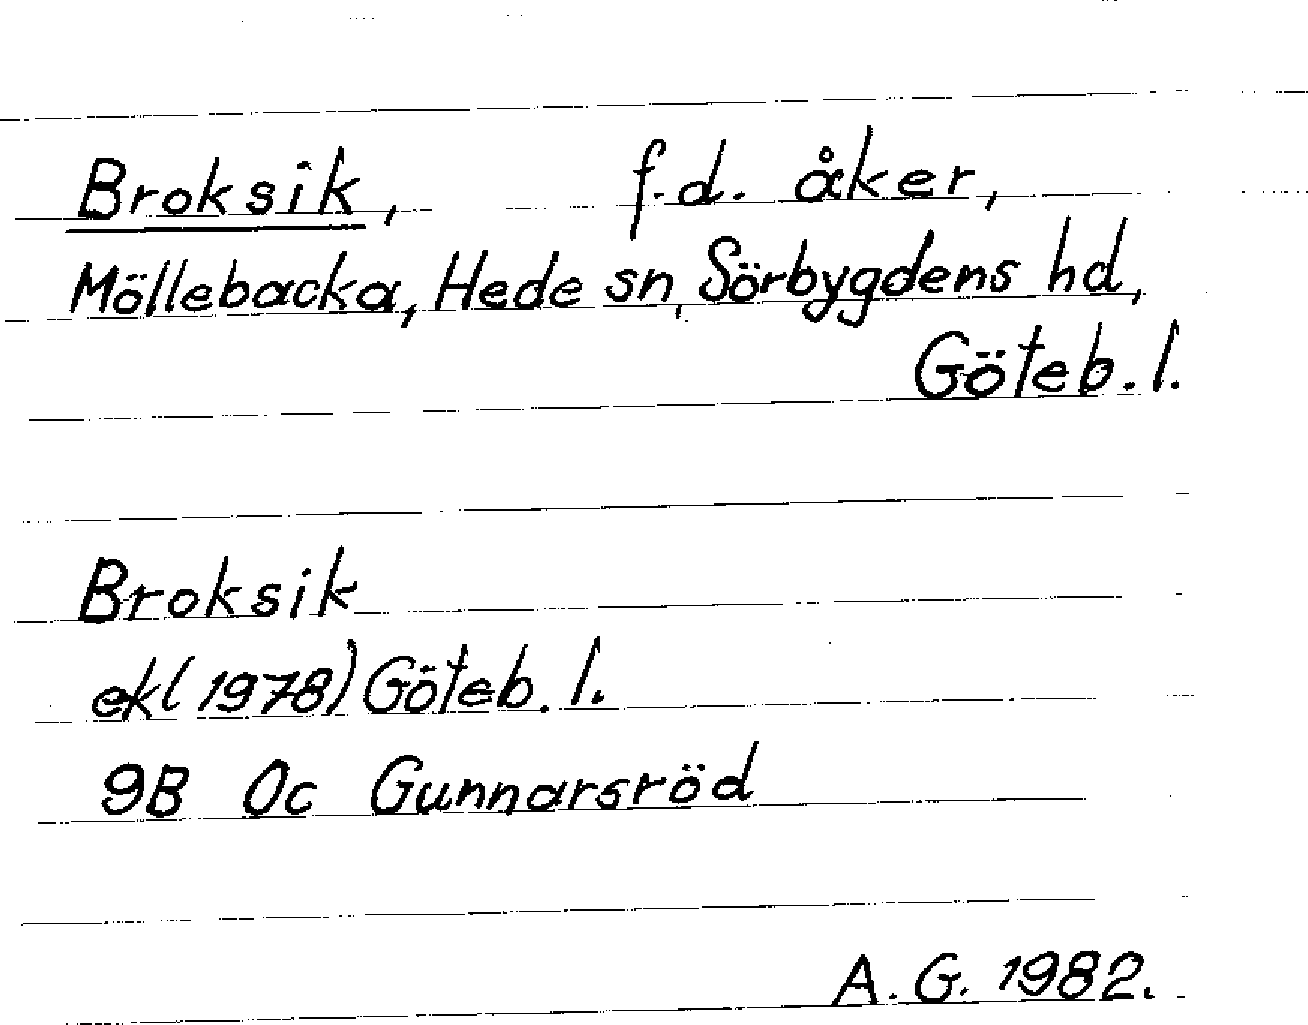 Broksik, f.d. åker,
Möllebacka, Hede sn, Sörbygdens hd,
Göteb. l.
Broksik
ekl (1978) Göteb. l.
9B 0c Gunnarsröd
A. G. 1982.